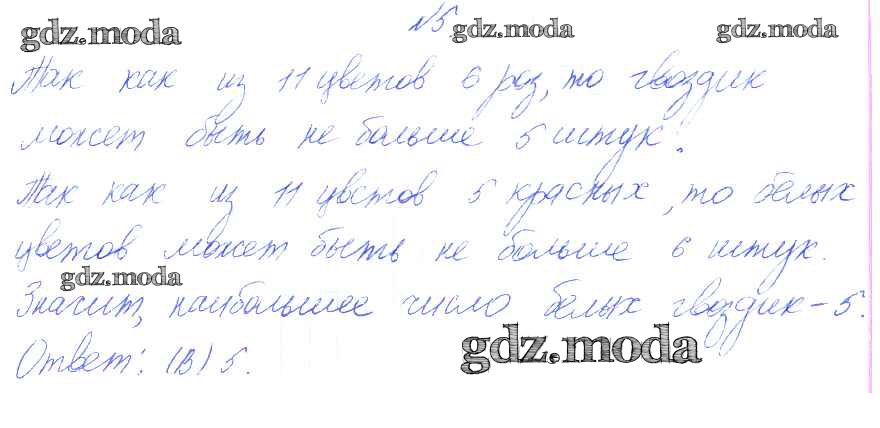 №5.
gdz.moda gdz.moda gdz.moda
Так как из 11 цветов 6 роз, то гвоздик
может быть не больше 5 штук.
Так как из 11 цветов 5 красных, то белых
цветов может быть не больше 6 штук.
gdz.moda
Значит, наибольшее число белых гвоздик – 5.
Ответ: (В) 5.
gdz.moda